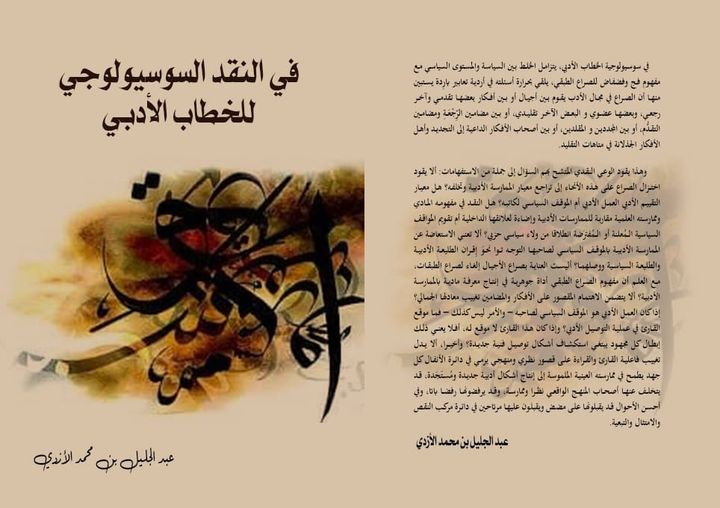 في النقد السوسيولوجي
للخطاب الأدبي
عبد الجليل بن محمد الأزدي
في سوسيولوجية الخطاب الأدبي، يتزامل الخلط بين السياسة والمستوى السياسي مع
مفهوم فج وفضفاض للصراع الطبقي، يلقي بحرارة أسئلته في أردية تعابير باردة يستبين
منها أن الصراع في مجال الأدب يقوم بين أجيال أو بين أفكار بعضها تقدمي وآخر
رجعي، وبعضها عضوي و البعض الآخر تقليدي، أو بين مضامين الرَّجْعَة ومضامين
التقدُّم، أو بين المجددين و المقلدين، أو بين أصحاب الأفكار الداعية إلى التجديد وأهل
الأفكار الجذلانة في متاهات التقليد.
وهذا يقود الوعي النقدي المتشح بهم السؤال إلى جملة من الاستفهامات: ألا يقود
اختزال الصراع على هذه الأنحاء إلى تراجع معيار الممارسة الأدبية وتخلفه؟ هل معيار
التقييم الأدبي العمل الأدبي أم الموقف السياسي لكاتبه؟ هل النقد في مفهومه المادي
وممارسته العلمية مقاربة للممارسات الأدبية وإضاءة لعلاقتها الداخلية أم تقويم المواقف
السياسية المُعلنة أو المُفترضة انطلاقا من ولاء سياسي حزبي؟ ألا تعني الاستعاضة عن
الممارسة الأدبية بالموقف السياسي لصاحبها التوجه توا نحو إقران الطليعة الأدبية
والطليعة السياسية ووصلهما؟ أليست العناية بصراع الأجيال إلغاء لصراع الطبقات،
مع العلم أن مفهوم الصراع الطبقي أداة جوهرية في إنتاج معرفة مادية بالممارسة
الأدبية؟ ألا يتضمن الاهتمام المقصور على الأفكار والمضامين تغييب معادلها الجمالي؟
إذا كان العمل الأدبي هو الموقف السياسي لصاحبه – والأمر ليس كذلك – فما موقع
القارئ في عملية التوصيل الأدبي؟ وإذا كان هذا القارئ لا موقع له، أفلا يعني ذلك
إبطال كل مجهود يبتغي استكشاف أشكال توصيل فنية جديدة؟ وأخيرا، ألا يدل
تغييب فاعلية القارئ والقراءة على قصور نظري ومنهجي يرمي في دائرة الأنفال كل
جهد يطمح في ممارسته العينية الملموسة إلى إنتاج أشكال أدبية جديدة ومُستَجَدة، قد
يتخلف عنها أصحاب المنهج الواقعي نظرا وممارسة، وقد يرفضونها رفضا باتا، وفي
أحسن الأحوال قد يقبلونها على مضض ويقبلون عليها مرتاحين في دائرة مركب النقص
والامتثال والتبعية.
عبد الجليل بن محمد الأزدي